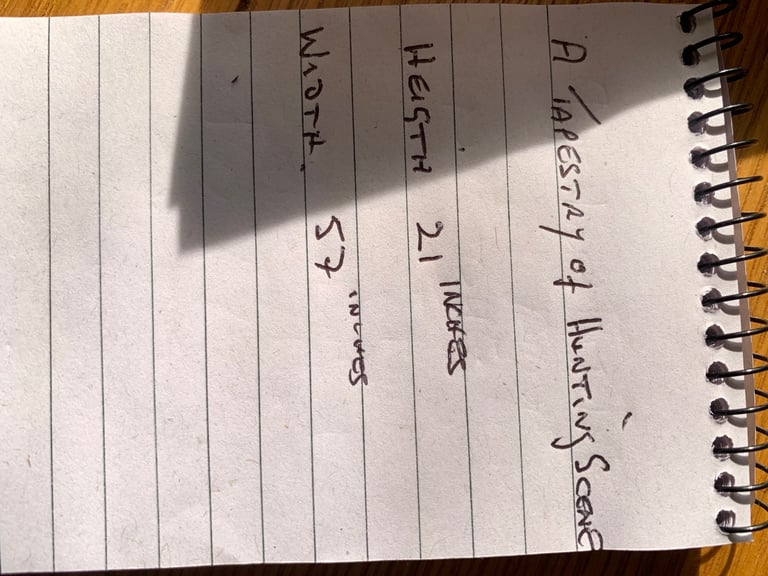 A TAPESTRY of HUNTING SCENE
HEIGTH 21 INCHES
WIDTH. 57 INCHES